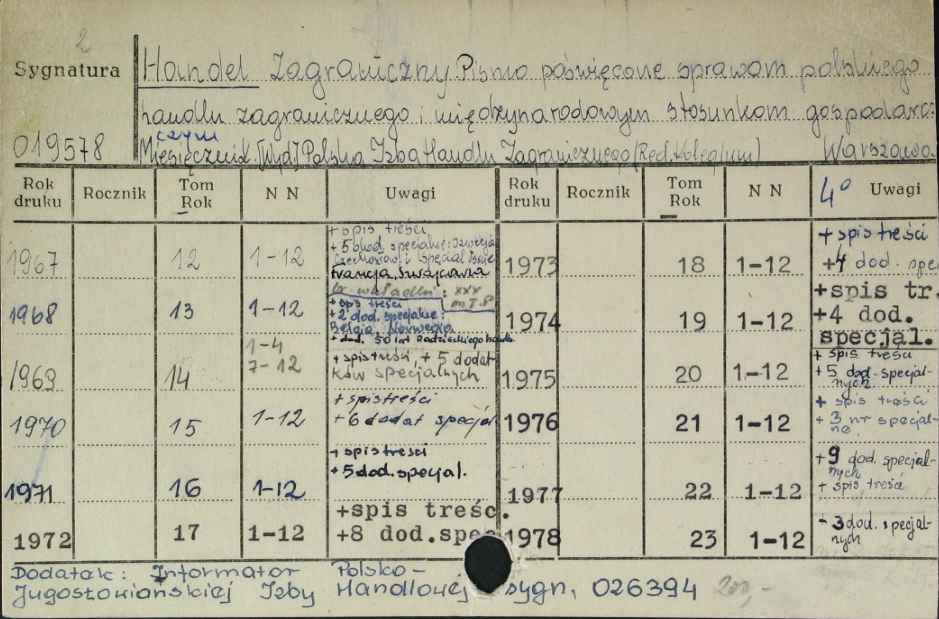 2
Sygnatura
Handel Zagraniczny. Pismo poświęcone sprawom polskiego
handlu zagranicznego i międzynarodowym stosunkom gospodar-
czym
019578
Miesięcznik. [Wyd.] Polska Izba Handlu Zagranicznego (Red. Kolegium) Warszawa
Rok druku Rocznik Tom Rok N N Uwagi Rok druku Rocznik Tom Rok N N 4° Uwagi
1967 12 1-12 + spis treści
+ 5 dod. specjalne:
Francja, Szwajcaria
1968 13 1-12 + spis treści
+ 2 dod. specjalne:
Belgia, Norwegia
1969 14 1-4
7-12 + spis treści, + 5 dodat-
ków specjalnych
1970 15 1-12 + spis treści
+ 6 dodat specjal
1971 16 1-12 + spis treści
+ 5 dod. specjal.
1972 17 1-12 +spis treśc.
+8 dod.spec
1973 18 1-12 + spis treści
+4 dod. spe
1974 19 1-12 +spis tr.
+4 dod.
specjal.
1975 20 1-12 + spis treści
+ 5 dod. specjal-
nych
1976 21 1-12 + spis treści
+ 3 nr specjal-
ne.
1977 22 1-12 + 9 dod. specjal-
nych
+ spis treści
1978 23 1-12 - 3 dod. specjal-
nych
Dodatek: Informator Polsko-
Jugosłowiańskiej Izby Handlowej sygn. 026394